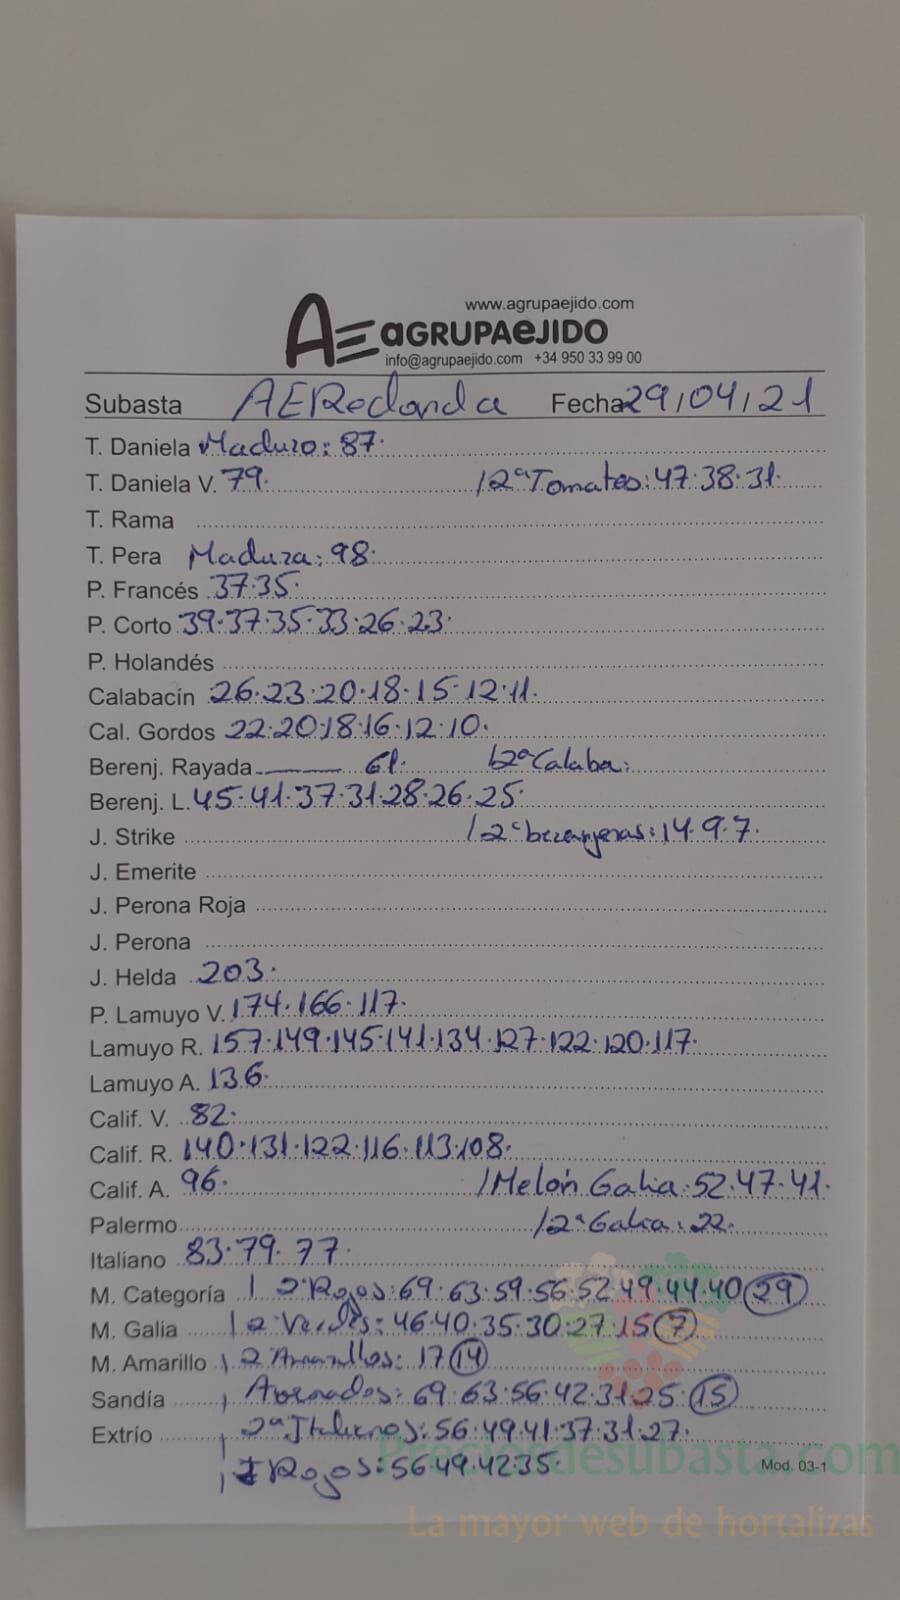 www.agrupaejido.com
AE aGRUPAeJIDO
info@agrupaejido.com +34 950 33 99 00
Subasta AERedonda Fecha 29/04/21
T. Daniela Maduro: 87.
T. Daniela V. 79. /2ª Tomates: 47.38.31.
T. Rama
T. Pera Madura: 98.
P. Francés 37.35.
P. Corto 39.37.35.33.26.23.
P. Holandés
Calabacín 26.23.20.18.15.12.11.
Cal. Gordos 22.20.18.16.12.10.
Berenj. Rayada 61. /2ª Calaba:
Berenj. L. 45.41.37.31.28.26.25.
J. Strike /2ª berenjenas: 14.9.7.
J. Emerite
J. Perona Roja
J. Perona
J. Helda 203.
P. Lamuyo V. 174.166.117.
Lamuyo R. 157.149.145.141.134.127.122.120.117.
Lamuyo A. 136.
Calif. V. 82.
Calif. R. 140.131.122.116.113.108.
Calif. A. 96. /Melón Galia: 52.47.41.
Palermo /2ª Galia: 22.
Italiano 83.79.77.
M. Categoría / 2ª Rojos: 69.63.59.56.52.49.44.40 29
M. Galia / 2ª Verdes: 46.40.35.30.27.15 7
M. Amarillo / 2ª Amarillos: 17 14
Sandía / Asurados: 69.63.56.42.31.25. 15
Extrío / 2ª Italianos: 56.49.41.37.31.27.
Rojos: 56.49.42.35. Mod. 03-1
Preciosdesubasta.com
La mayor web de hortalizas